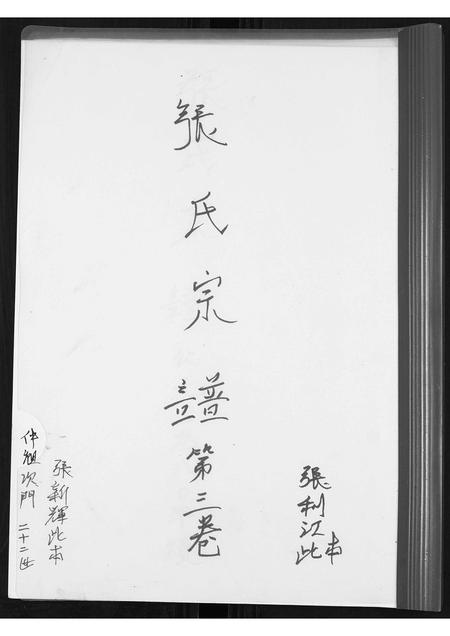 張氏宗譜第三卷
張利江此本
張新輝此本
仲祖次門 二十二世